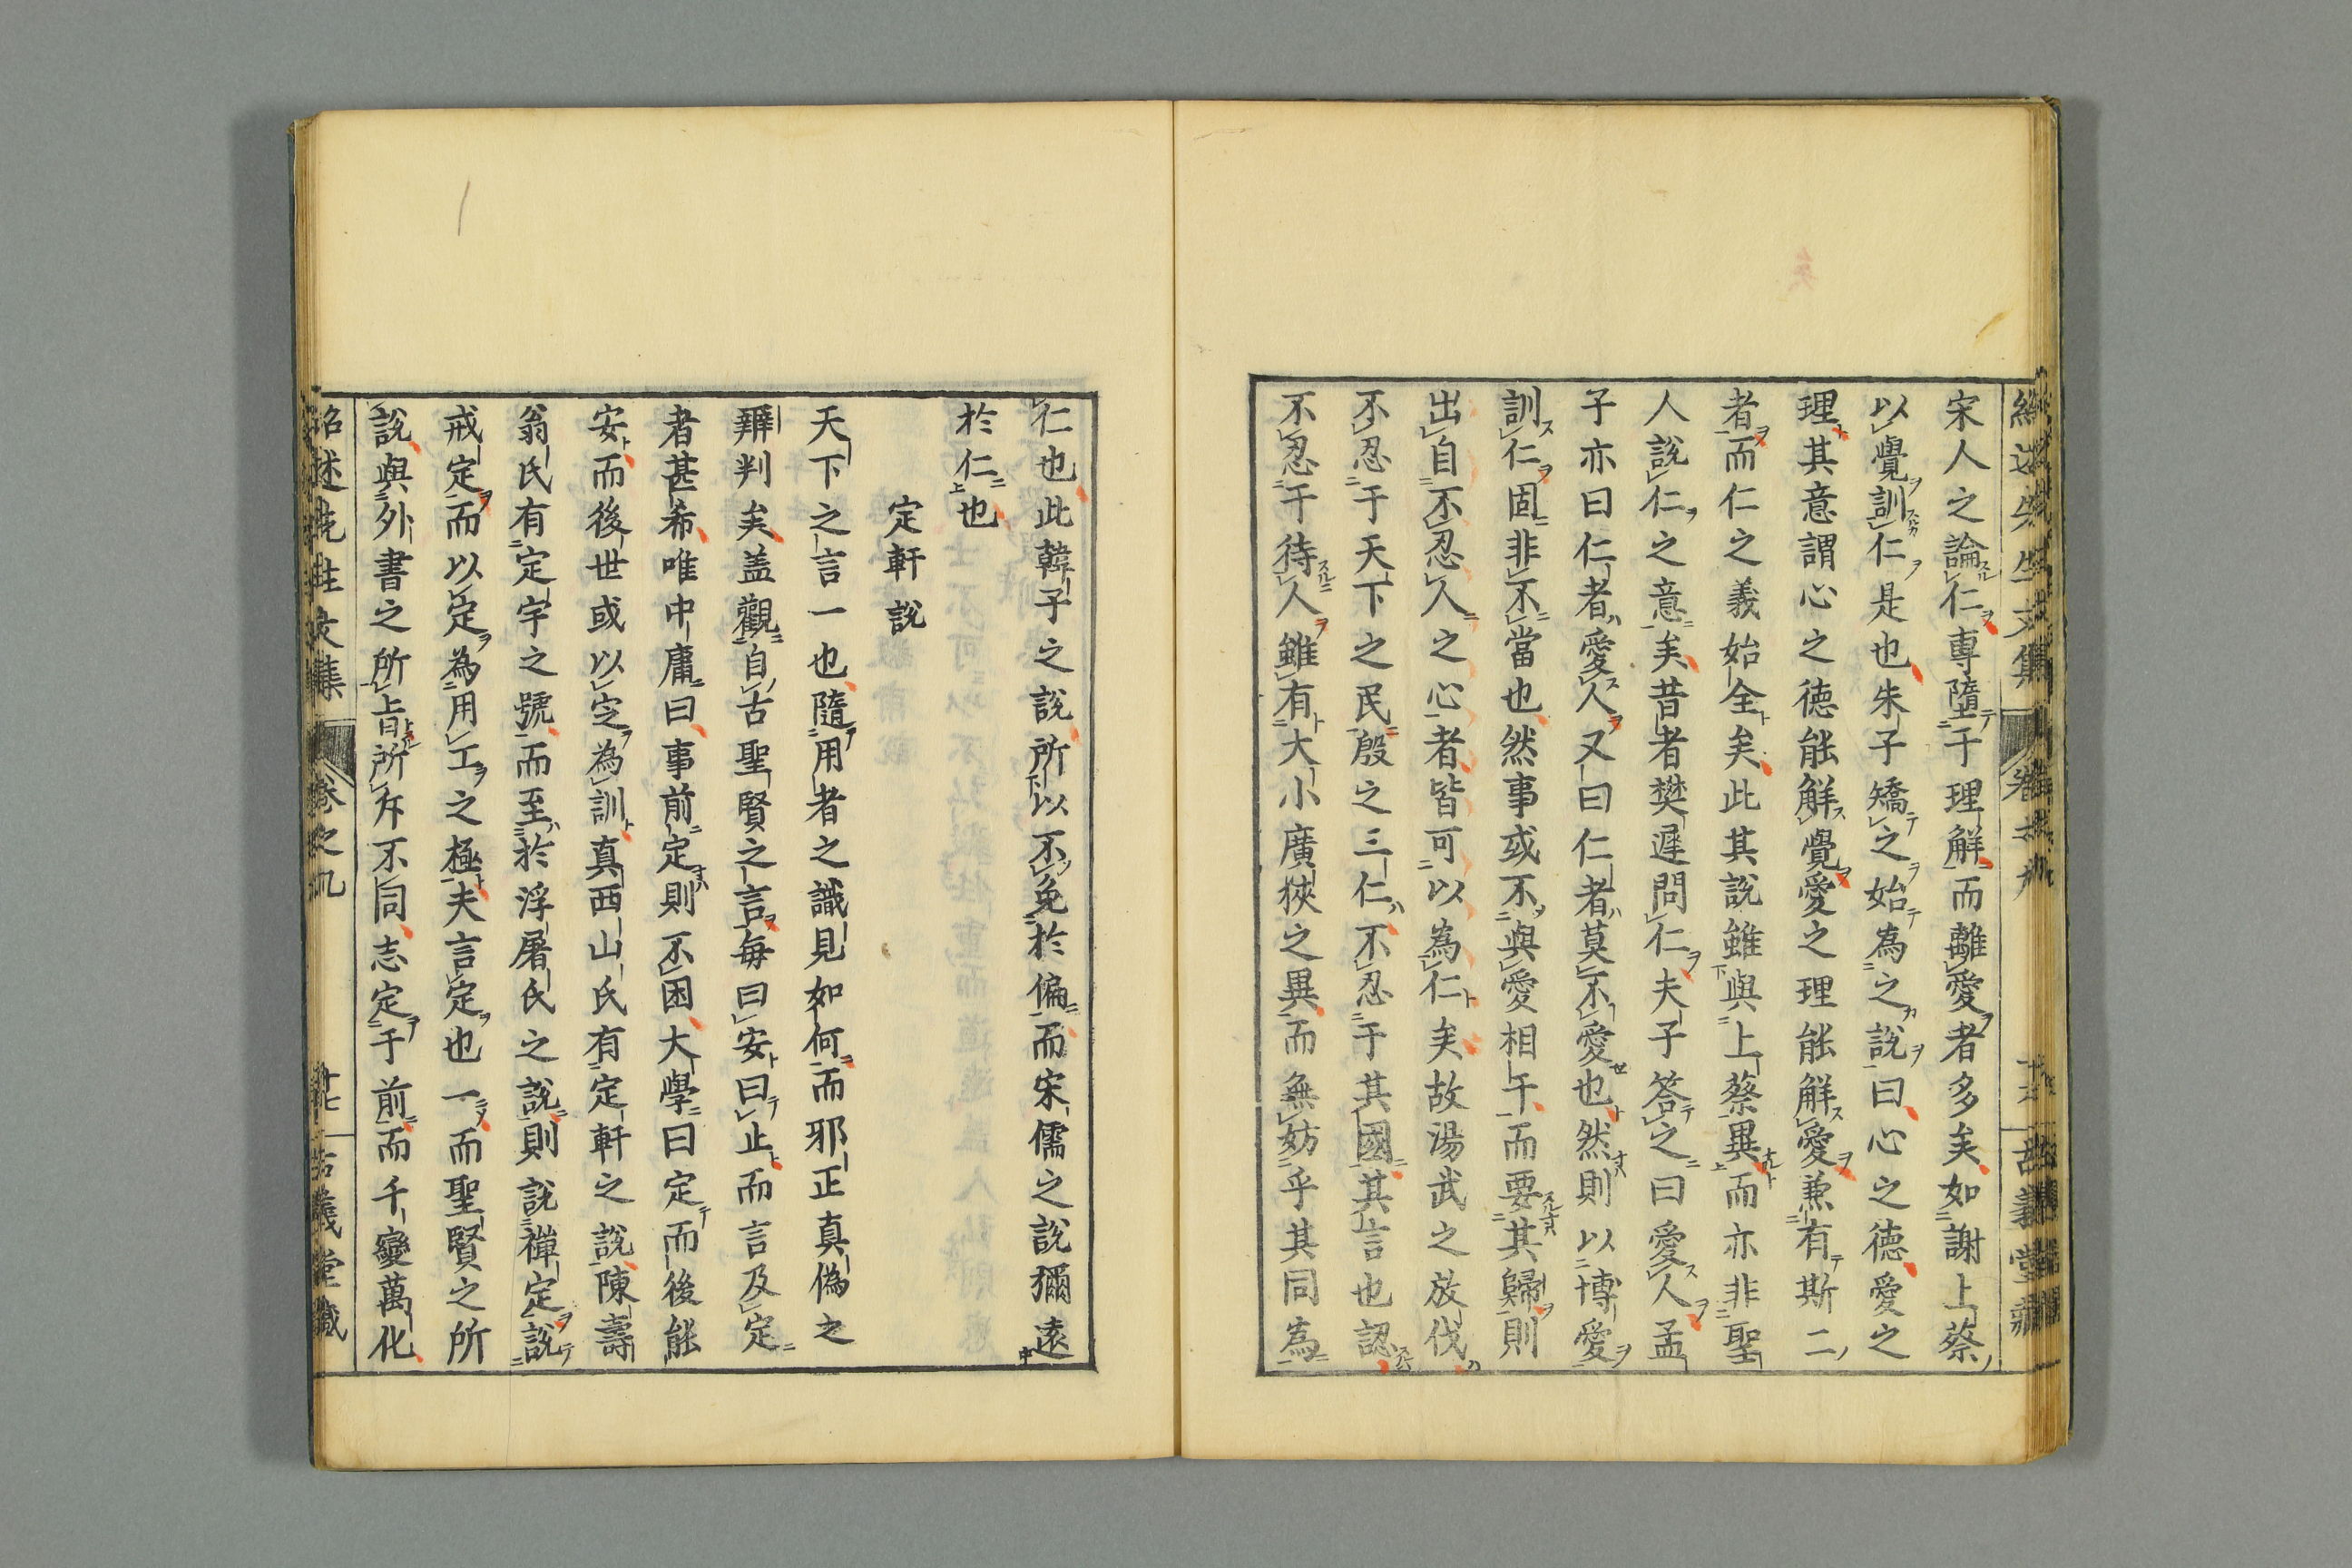 宋人之論仁專墮于理解而離愛者多矣如謝上蔡
以覺訓仁是也朱子矯之始為之說曰心之德愛之
理其意謂心之德能解覺愛之理能解愛兼有斯二
者而仁之義始全矣此其說雖與上蔡異而亦非聖
人說仁之意矣昔者樊遲問仁夫子答之曰愛人孟
子亦曰仁者愛人又曰仁者莫不愛也然則以博愛
訓仁固非不當也然事或不與愛相干而要其歸則
出自不忍人之心者皆可以為仁矣故湯武之放伐
不忍于天下之民殷之三仁不忍于其國其言也認
不忍于待人雖有大小廣狹之異而無妨乎其同為
仁也此韓子之說所以不免於偏而宋儒之說獨遠
於仁也
定軒說
天下之言一也隨用者之識見如何而邪正真偽之
辨判矣盖觀自古聖賢之言每曰安曰止而言及定
者甚希唯中庸曰事前定則不困大學曰定而後能
安而後世或以定為訓真西山氏有定軒之說陳壽
翁氏有定宇之號而至於浮屠氏之說則說禪定說
戒定而以定為用工之極夫言定也一而聖賢之所
說與外書之所旨所斥不同志定于前而千變萬化
紹述先生文集 卷之九 十七 古義堂藏